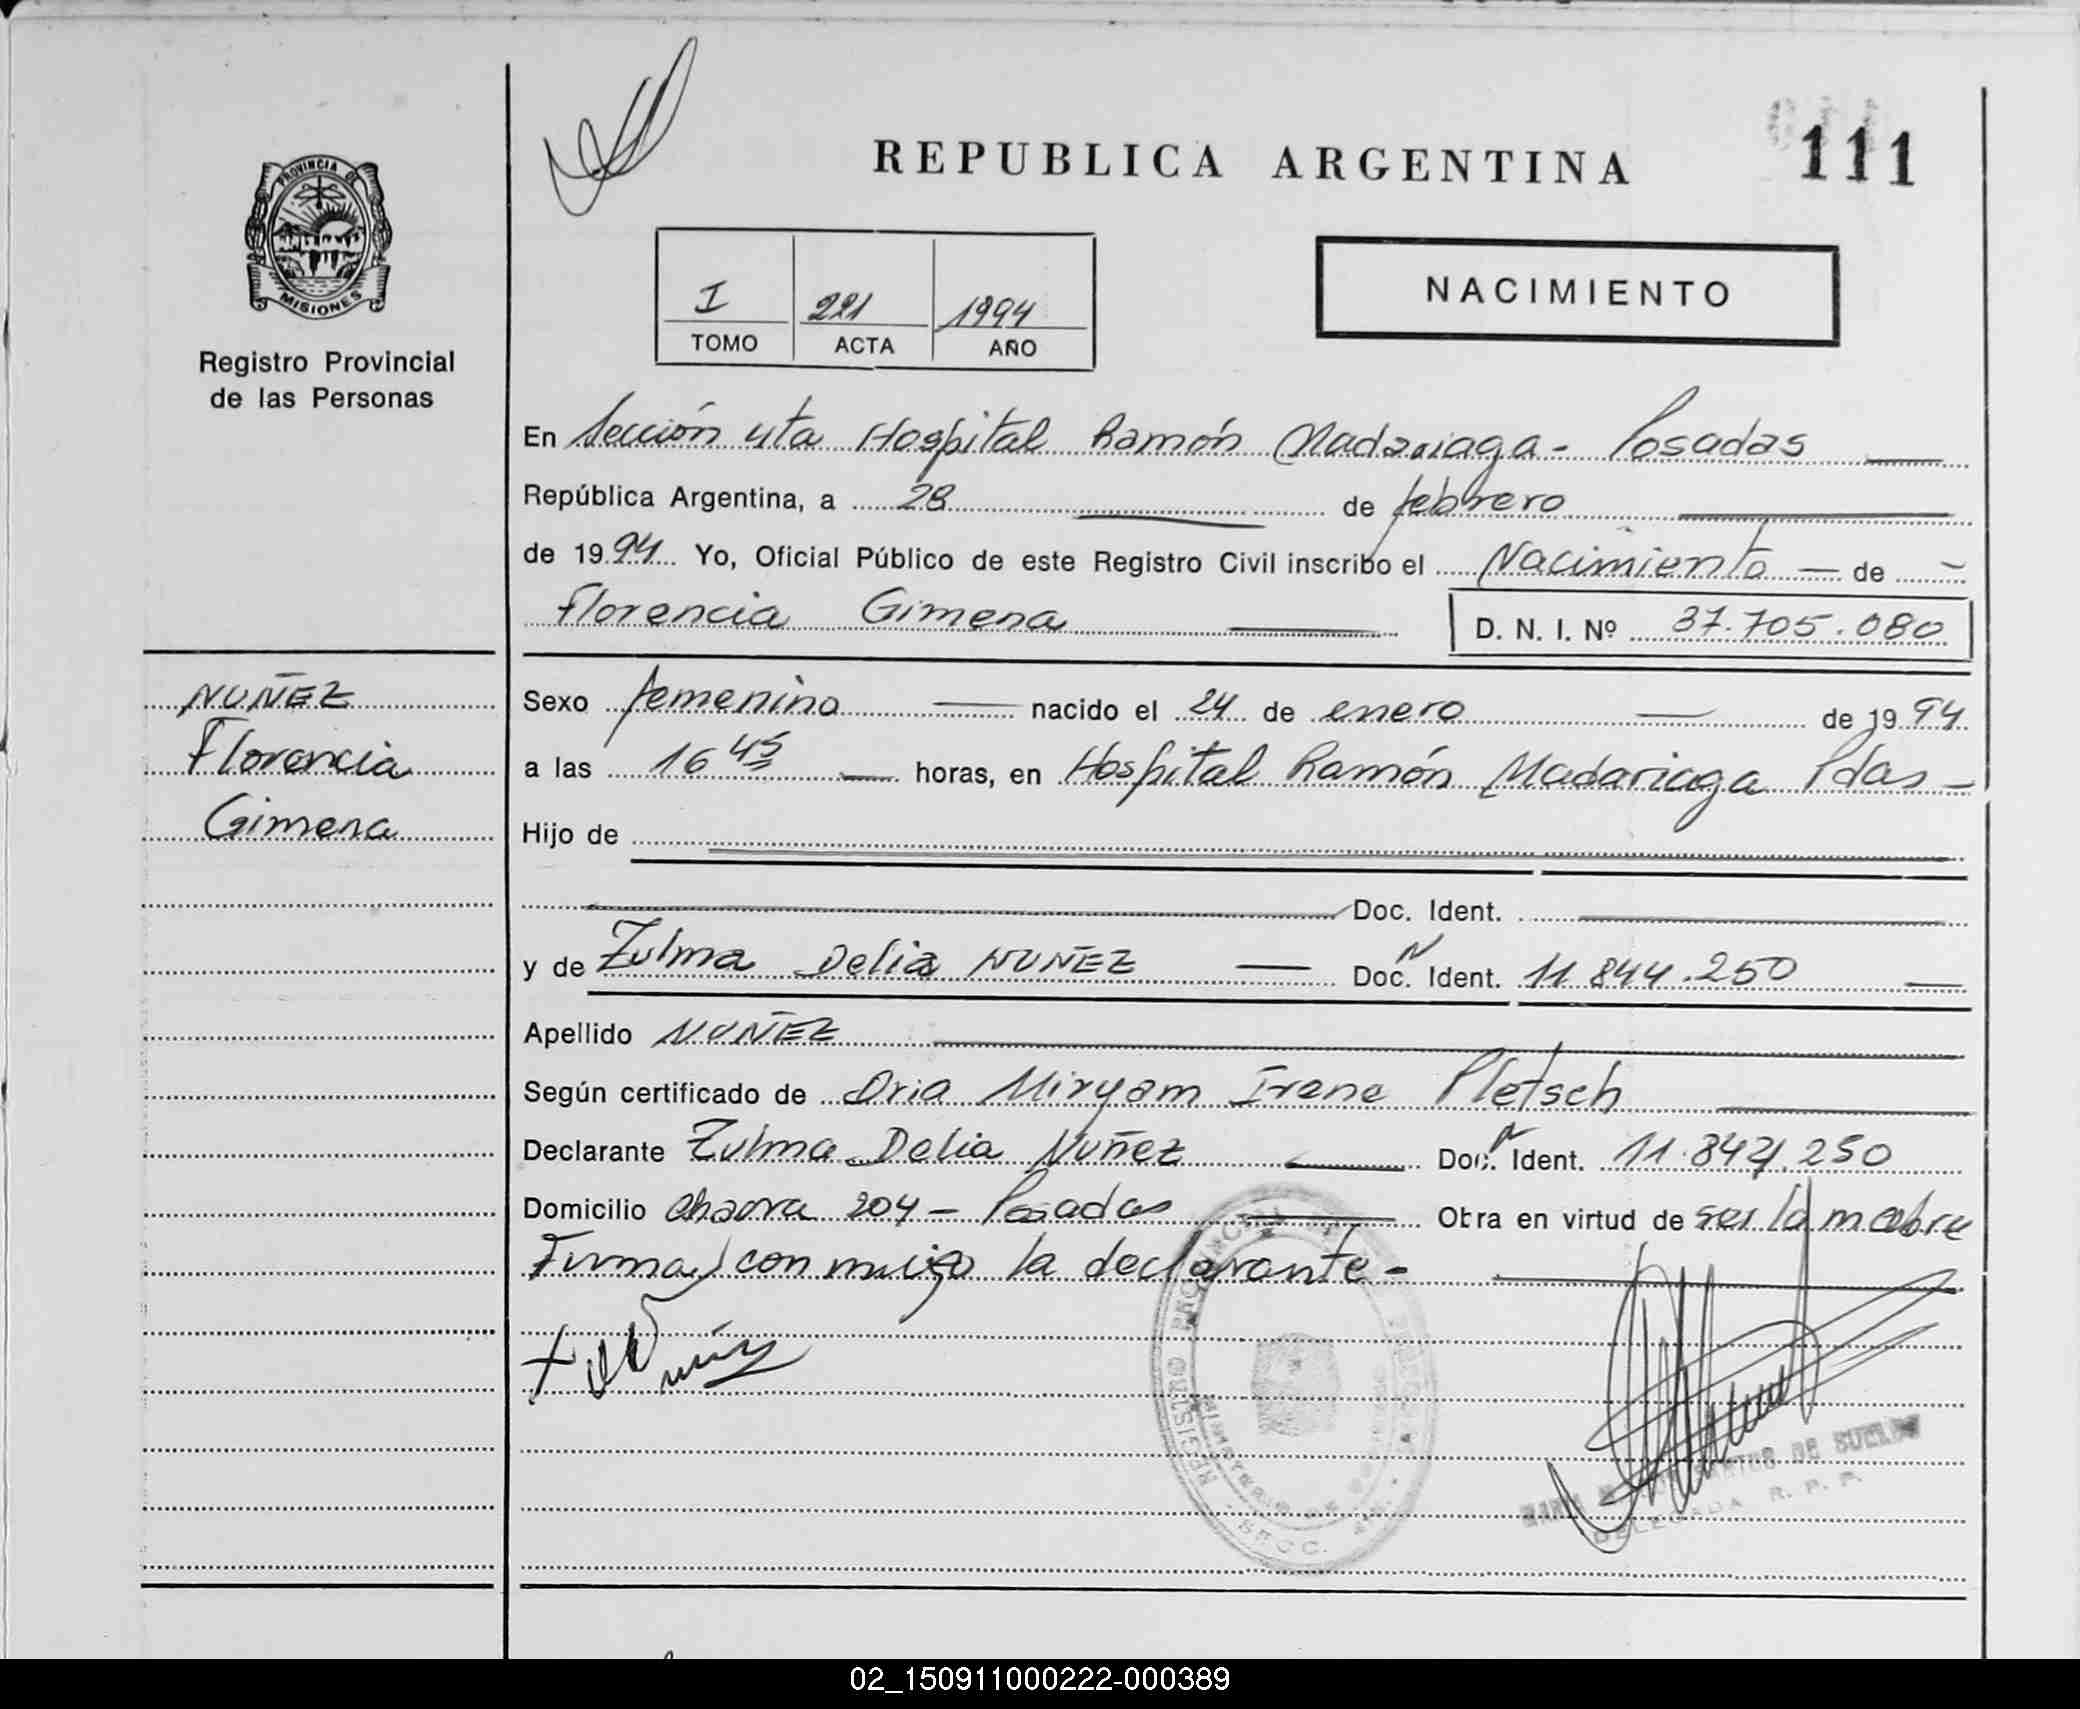 REPUBLICA ARGENTINA
111
PROVINCIA DE
MISIONES
Registro Provincial
de las Personas
I 221 1994
TOMO ACTA AÑO
NACIMIENTO
En Sección 4ta Hospital Ramón Madariaga - Posadas
República Argentina, a 28 de febrero
de 1994 Yo, Oficial Público de este Registro Civil inscribo el Nacimiento de
Florencia Gimena D. N. I. Nº 37.705.080
NUÑEZ
Florencia
Gimena
Sexo femenino nacido el 24 de enero de 1994
a las 16 45 horas, en Hospital Ramón Madariaga Pdas
Hijo de
Doc. Ident.
y de Zulma Delia NUÑEZ Doc. Ident. 11.844.250
Apellido NUÑEZ
Según certificado de Dria Miryam Irene Pletsch
Declarante Zulma Delia Nuñez Doc. Ident. 11.844.250
Domicilio 204 - Posadas Obra en virtud de ser la madre
Firma conmigo la declarante -
REGISTRO PROVINCIAL
MINISTERIO DE
DE SUELDO
DELEGADA R. P. P.
02_150911000222-000389